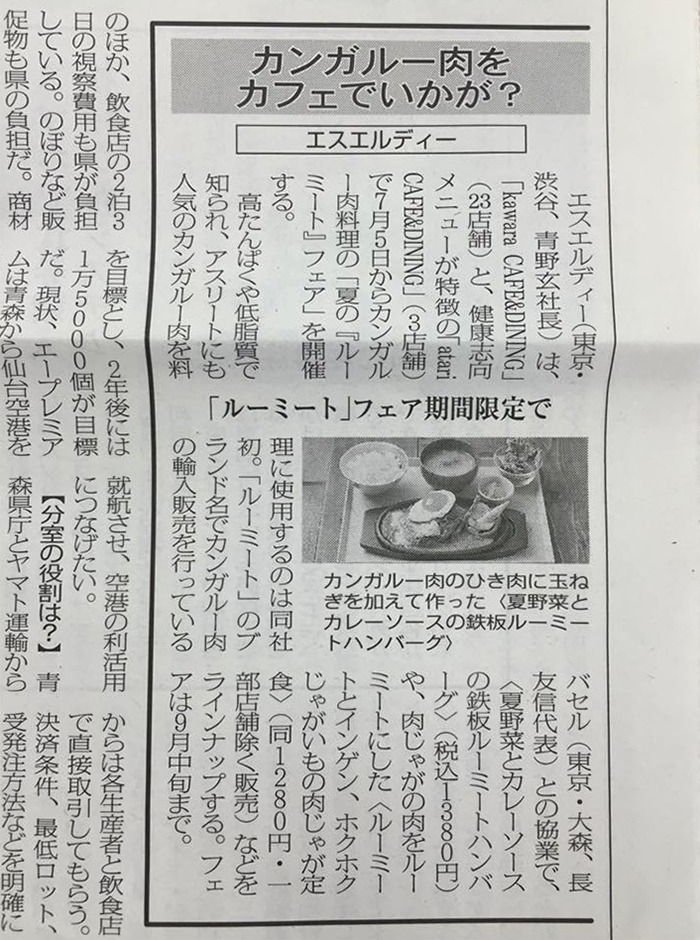 カンガルー肉を
カフェでいかが?
エスエルディー
エスエルディー(東京・
渋谷、青野玄社長)は、
「kawara CAFE&DINING」
(23店舗)と、健康志向
メニューが特徴の「atari
CAFE&DINING」(3店舗)
で7月5日からカンガル
ー肉料理の「夏の『ルー
ミート』フェア」を開催
する。
高たんぱくや低脂質で
知られ、アスリートにも
人気のカンガルー肉を料
「ルーミート」フェア期間限定で
理に使用するのは同社
初。「ルーミート」のブ
ランド名でカンガルー肉
の輸入販売を行っている
カンガルー肉のひき肉に玉ね
ぎを加えて作った〈夏野菜と
カレーソースの鉄板ルーミー
トハンバーグ〉
バセル(東京・大森、長
友信代表)との協業で、
〈夏野菜とカレーソース
の鉄板ルーミートハンバ
ーグ〉(税込1380円)
や、肉じゃがの肉をルー
ミートにした〈ルーミー
トとインゲン、ホクホク
じゃがいもの肉じゃが定
食〉(同1280円・一
部店舗除く販売)などを
ラインナップする。フェ
アは9月中旬まで。
のほか、飲食店の2泊3
日の視察費用も県が負担
している。のぼりなど販
促物も県の負担だ。商材
を目標とし、2年後には
1万5000個が目標
だ。現状、エープレミア
ムは青森から仙台空港を
就航させ、空港の利活用
につなげたい。
【分室の役割は?】 青
森県庁とヤマト運輸から
からは各生産者と飲食店
で直接取引してもらう。
決済条件、最低ロット、
受発注方法などを明確に